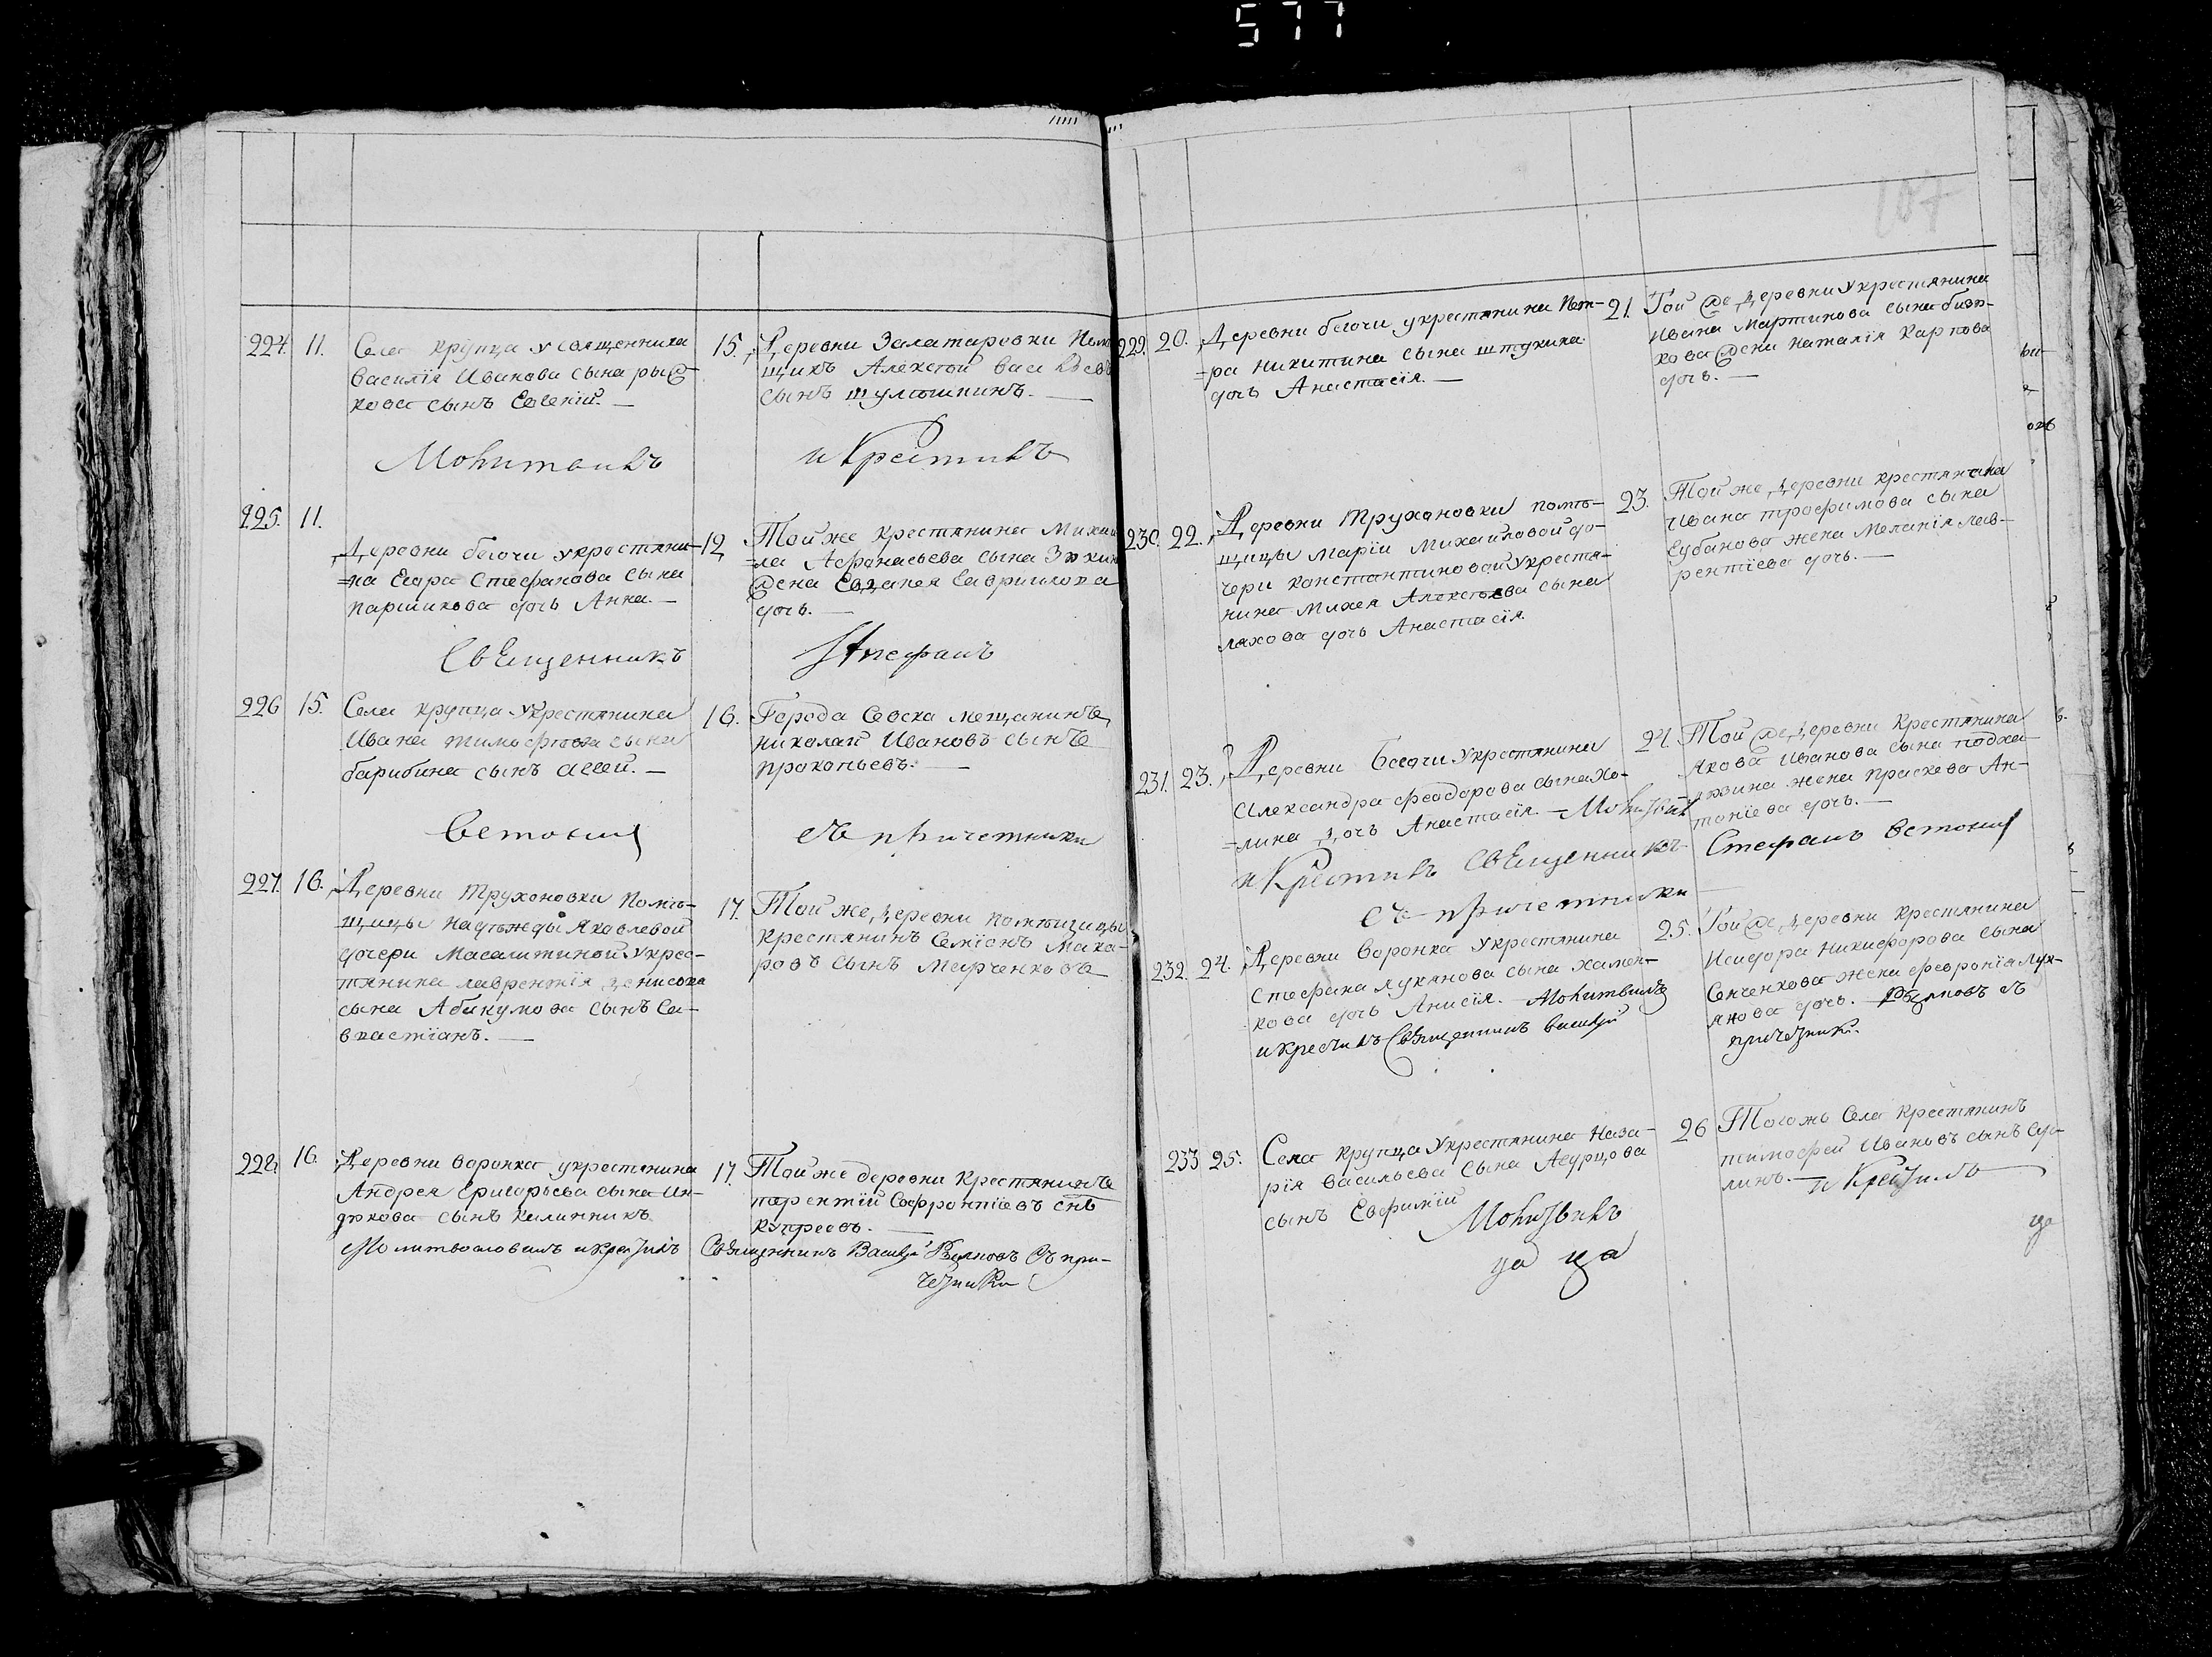 577
107
224. 11. Села Крупца у священника
Василія Иванова сына рыж-
кова сынъ Евгеній. —
15. Деревни Залатаровки Пом
щикъ Алексѣй Васильевъ
сынъ Шулюшкинъ. —
Молитвилъ
и Крестилъ
225. 11.
Деревни бегочи у крестяни-
=на Егора Стефанова сына
Паршикова дочь Анна. —
12. Той же крестянина Михаи
=ла Афонасьева сына
жена Гавриилова
дочь. —
Священникъ
Стефанъ
226 15. Села Крупца у крестянина
Ивана Тимофеова сына
барибина сынъ Агей. —
16. Города Севска мещанинъ
Николай Ивановъ сынъ
Прокопьевъ. —
Ветохин
съ причетники
227. 16. Деревни Трухоновки помѣ-
щицы Надѣжды Яковлевой
дочери Масалитиной у крес-
тянина Лаврентія Денисова
сына Абакумова сынъ Се-
вастіанъ. —
17. Той же деревни помѣщицы
крестянинъ Семіонъ Мака-
ровъ сынъ Марченковъ
228. 16. Деревни Воронка у крестянина
Андрея Григорьева сына Ин-
дюкова сынъ Калинникъ.
17. Той же деревни крестянинъ
терентій Софронтіевъ снъ
Купреевъ. —
Молитвословилъ и крестилъ Священникъ Василій съ при-
четники
229. 20. Деревни бегочи у крестянина Пет-
=ра Никитина сына штукина
дочь Анастасія. —
21. Той же деревни у крестянина
Ивана Мартинова сына
кова жена Наталія Карпова
дочь. —
230. 22. Деревни Трухоновки помѣ-
щицы Маріи Михаиловой до-
чери Константиновой у крестя-
нина Михея Алексѣева сына
ляхова дочь Анастасія.
23. Той же деревни крестянина
Ивана Трофимова сына
Губанова жена Меланія Лав-
рентіева дочь. —
231. 23. Деревни Бегочи у крестянина
Александра феодорова сына Хо-
=лина дочь Анастасія. — Молитвилъ
24. Той же деревни крестянина
Якова Иванова сына подха-
люзина жена Праскева Ан-
тоніева дочь. —
и Крестилъ Священникъ Стефанъ Ветохин
съ причетники
232. 24. Деревни Воронка у крестянина
Стефана Лукянова сына Хамен-
кова дочь Анисія. — Молитвилъ
и крестилъ Священникъ Василій
25. Той же деревни крестянина
Исидора Никифорова сына
Сенченкова жена феврония Лук-
янова дочь. — съ
причетники.
233 25. Села Крупца у крестянина Наза-
рія Васильева сына Агурцова
сынъ Евфимій
26 Тогожъ Села крестянинъ
тимофей Ивановъ сынъ Су-
линъ. — и Крестилъ
Молитвилъ